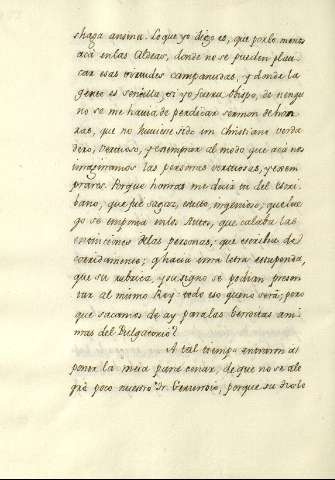 se haga ansina. Lo que yo digo es, que por lo menos
acá en las Aldeas, donde no se pueden plati-
car esas virtudes campanudas, y donde la
gente es sencilla, si yo fuera Obispo, de ningu-
no se me havia de perdicar sermon de hon
ras, que no huviese sido un Christiano verda
dero, Vertuoso, y exemprar al modo que acá nos
imaginamos las personas vertuosas, y exem
prares. Porque honras me decir tú del Escri-
bano, que fué sagaz, estuto, ingenioso; que lue
go se imponia en los Autos, que calaba las
entinciones de las personas, que escribia de
corridamente; q hacia una letra estupenda,
que su rubrica, y su signo se podian presen
tar al mismo Rey: todo eso gueno será; pero
que sacamos de ay para las benditas ani
mas del Pulgatorio?
A tal tiempo entraron a
poner la mesa para cenar, de que no se ale
gró poco nuestro Fr. Gerundio, porque su